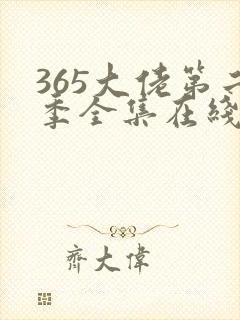 365大佬第二
季全集在线
齐大偉